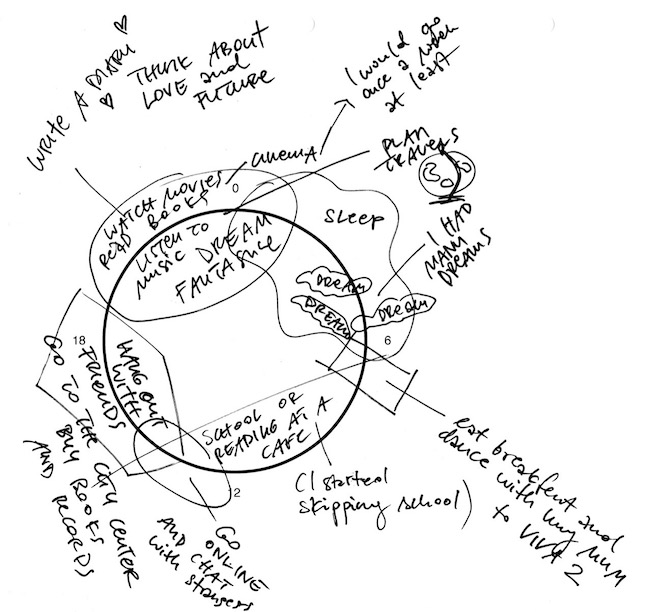 WRITE A DIARY
THINK ABOUT
LOVE and
FUTURE
I would go
once a week
at least
CINEMA
PLAN
TRAVELS
0
WATCH MOVIES
READ BOOKS
LISTEN TO
MUSIC DREAM
FANTASIZE
SLEEP
I HAD
MANY
DREAMS
DREAM
DREAM
DREAM
18
6
HANG OUT
WITH
FRIENDS
GO TO THE CITY CENTER
BUY BOOKS
AND RECORDS
SCHOOL OR
READING AT A
CAFE
2
(I started
skipping school)
GO
ONLINE
AND CHAT
with strangers
eat breakfast and
dance with my mum
to VIVA 2